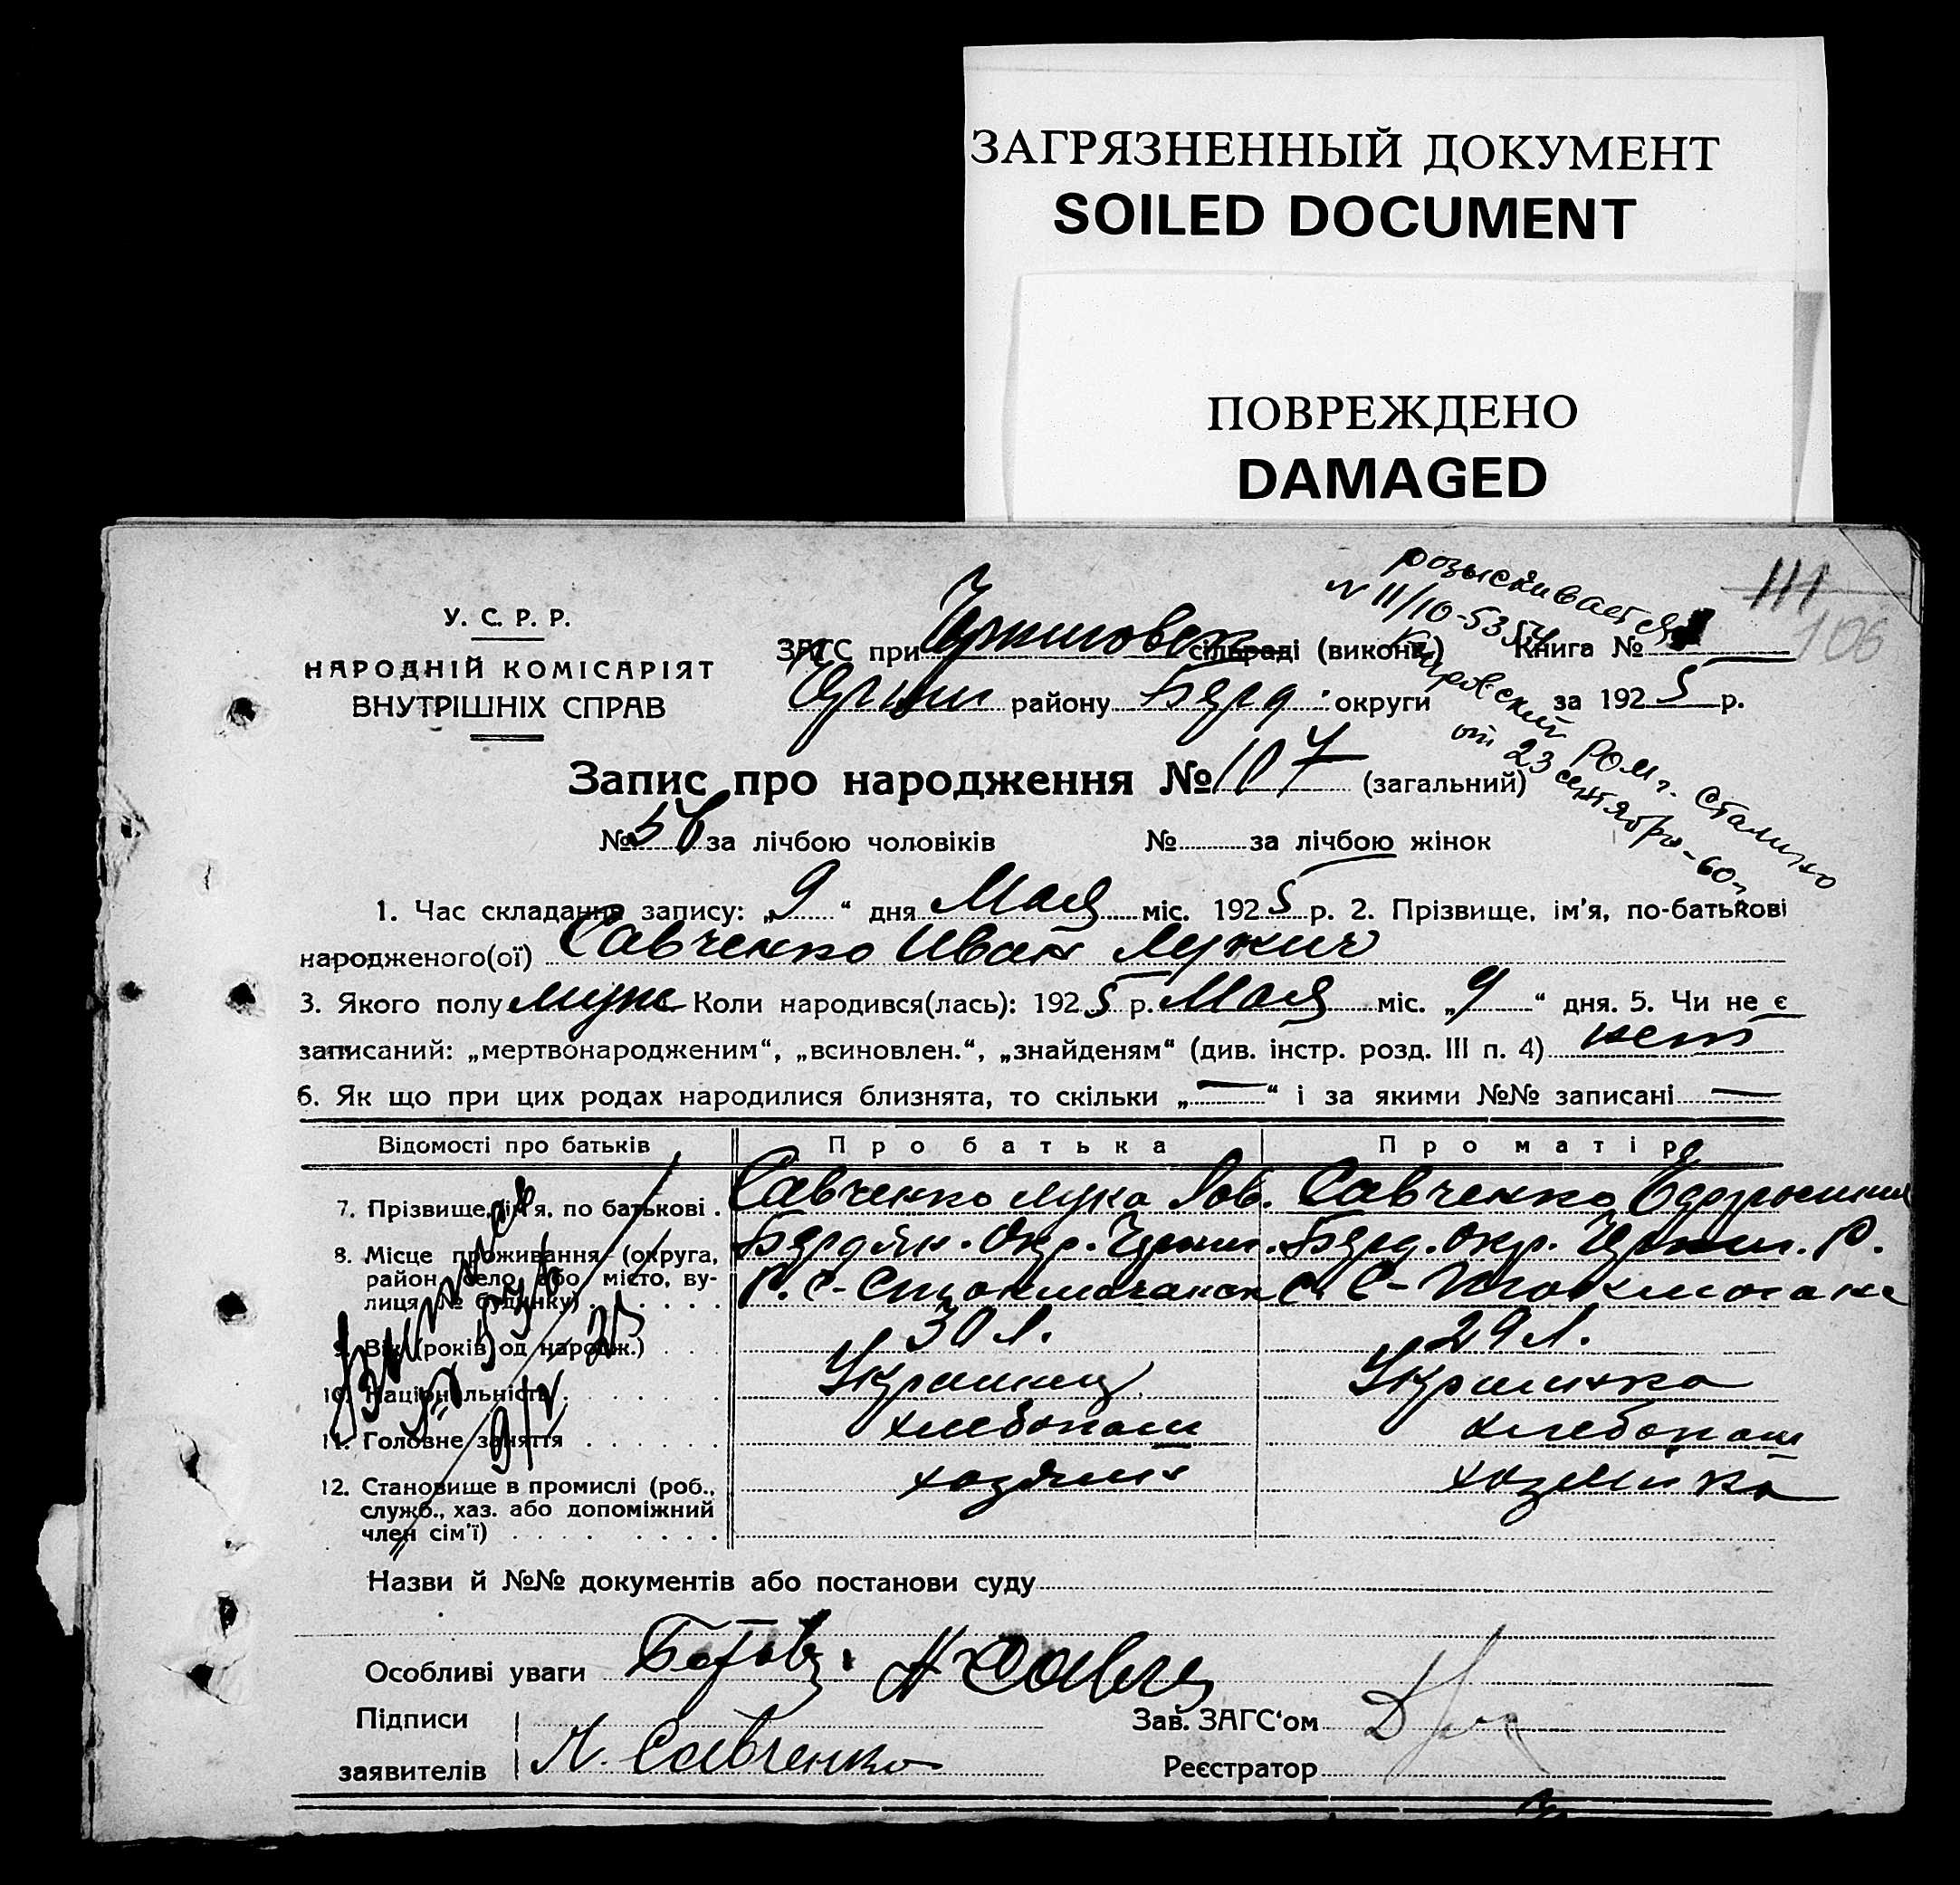 ЗАГРЯЗНЕННЫЙ ДОКУМЕНТ
SOILED DOCUMENT
ПОВРЕЖДЕНО
DAMAGED
розыскивается
N 11/10-5354
Кировский РОМ г. Сталино
от 23 сентября-60г.
111
106
У. С. Р. Р.
НАРОДНІЙ КОМІСАРІЯТ
ВНУТРІШНІХ СПРАВ
ЗАГС при сільраді (виконк.) Книга №
району Берд. округи за 1925 р.
Запис про народження № 107 (загальний)
№ 56 за лічбою чоловіків № за лічбою жінок
1. Час складання запису: „9“ дня Мая міс. 1925 р. 2. Прізвище, ім'я, по-батькові
народженого(ої) Савченко Иван Лукич
3. Якого полу муж Коли народився(лась): 1925 р. Мая міс. „9“ дня. 5. Чи не є
записаний: „мертвонародженим“, „всиновлен.“, „знайденям“ (див. інстр. розд. III п. 4) нет
6. Як що при цих родах народилися близнята, то скільки „—“ і за якими №№ записані —
Відомості про батьків Про батька Про матір
7. Прізвище, ім'я, по батькові . Савченко Лука Савченко
8. Місце проживання (округа, Бердян. Окр. Берд. Окр. Р.
район, село, або місто, ву- Р. С-
лиця, № будинку)
9. Вік (років од народж.) 30 л. 29 л.
10. Національність Украинец Украинка
11. Головне заняття хлебопаш хлебопаш
12. Становище в промислі (роб., хозяин хозяйка
служб., хаз. або допоміжний
член сім'ї)
Назви й №№ документів або постанови суду
Особливі уваги
Підписи Зав. ЗАГС'ом
заявителів Л. Савченко Реєстратор